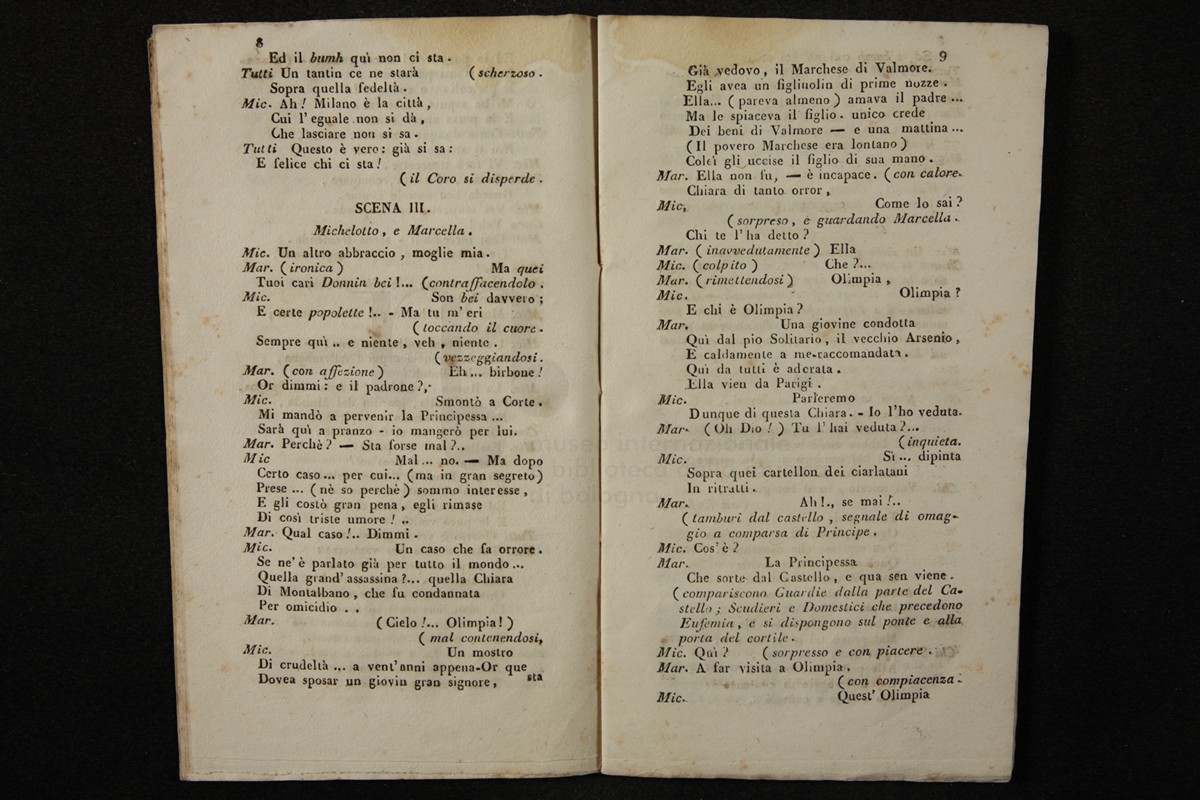 8
Ed il bumh quì non ci sta.
Tutti Un tantin ce ne starà (scherzoso.
Sopra quella fedeltà.
Mic. Ah! Milano è la città,
Cui l'eguale non si dà,
Che lasciare non si sa.
Tutti Questo è vero: già si sa:
E felice chi ci sta!
(il Coro si disperde.
SCENA III.
Michelotto, e Marcella.
Mic. Un altro abbraccio, moglie mia.
Mar. (ironica) Ma quei
Tuoi cari Donnin bei!... (contraffacendolo.
Mic. Son bei davvero;
E certe popolette!.. - Ma tu m'eri
(toccando il cuore.
Sempre quì.. e niente, veh, niente.
(vezzeggiandosi.
Mar. (con affezione) Eh... birbone!
Or dimmi: e il padrone?,-
Mic. Smontò a Corte.
Mi mandò a pervenir la Principessa...
Sarà quì a pranzo - io mangerò per lui.
Mar. Perchè? — Sta forse mal?..
Mic Mal... no. — Ma dopo
Certo caso... per cui... (ma in gran segreto)
Prese... (nè so perchè) sommo interesse,
E gli costò gran pena, egli rimase
Di così triste umore! ..
Mar. Qual caso!.. Dimmi.
Mic. Un caso che fa orrore.
Se ne'è parlato già per tutto il mondo...
Quella grand'assassina?... quella Chiara
Di Montalbano, che fu condannata
Per omicidio . .
Mar. (Cielo!... Olimpia!)
(mal contenendosi,
Mic. Un mostro
Di crudeltà... a vent'anni appena-Or que
Dovea sposar un giovin gran signore,
sta
9
Già vedovo, il Marchese di Valmore.
Egli avea un figliuolin di prime nozze.
Ella... (pareva almeno) amava il padre...
Ma le spiaceva il figlio. unico crede
Dei beni di Valmore — e una mattina...
(Il povero Marchese era lontano)
Coleì gli uccise il figlio di sua mano.
Mar. Ella non fu, — è incapace. (con calore.
Chiara di tanto orror,
Mic. Come lo sai?
(sorpreso, e guardando Marcella.
Chi te l'ha detto?
Mar. (inavvedutamente) Ella
Mic. (colpito) Che?...
Mar. (rimettendosi) Olimpia,
Mic. Olimpia?
E chi è Olimpia?
Mar. Una giovine condotta
Quì dal pio Solitario, il vecchio Arsenio,
E caldamente a me raccomandata.
Quì da tutti è adorata.
Ella vien da Parigi.
Mic. Parleremo
Dunque di questa Chiara. - Io l'ho veduta.
Mar. (Oh Dio!) Tu l'hai veduta?...
(inquieta.
Mic. Sì... dipinta
Sopra quei cartellon dei ciarlatani
In ritratti.
Mar. Ah!., se mai!..
(tamburi dal castello, segnale di omag-
gio a comparsa di Principe.
Mic. Cos'è?
Mar. La Principessa
Che sorte dal Castello, e qua sen viene.
(compariscono Guardie dalla parte del Ca-
stello; Scudieri e Domestici che precedono
Eufemia, e si dispongono sul ponte e alla
porta del cortile.
Mic. Quì? (sorpresso e con piacere.
Mar. A far visita a Olimpia.
(con compiacenza.
Mic. Quest' Olimpia
museo internazionale
biblioteca
di bologna